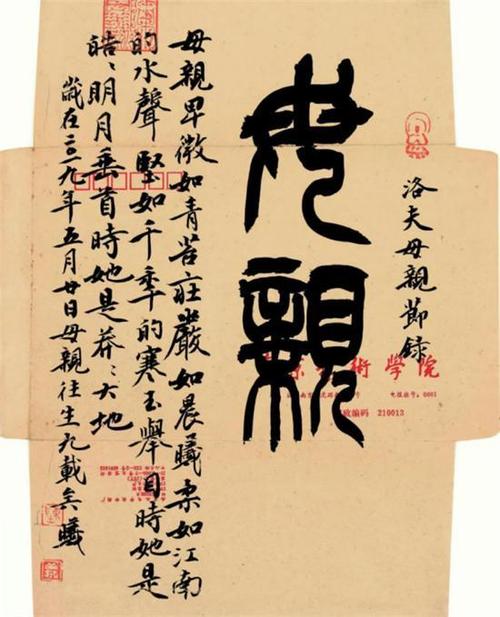 洛夫母親節錄
母親
母親卑微如青苔莊嚴如晨曦柔如江南
的水聲堅如千秊的寒玉舉目時她是
皓〻明月垂首時她是莽〻大地
歲在二〇一九年五月廿日母親往生九載矣曦
術學院
电报挂号：0001
政编码 210013